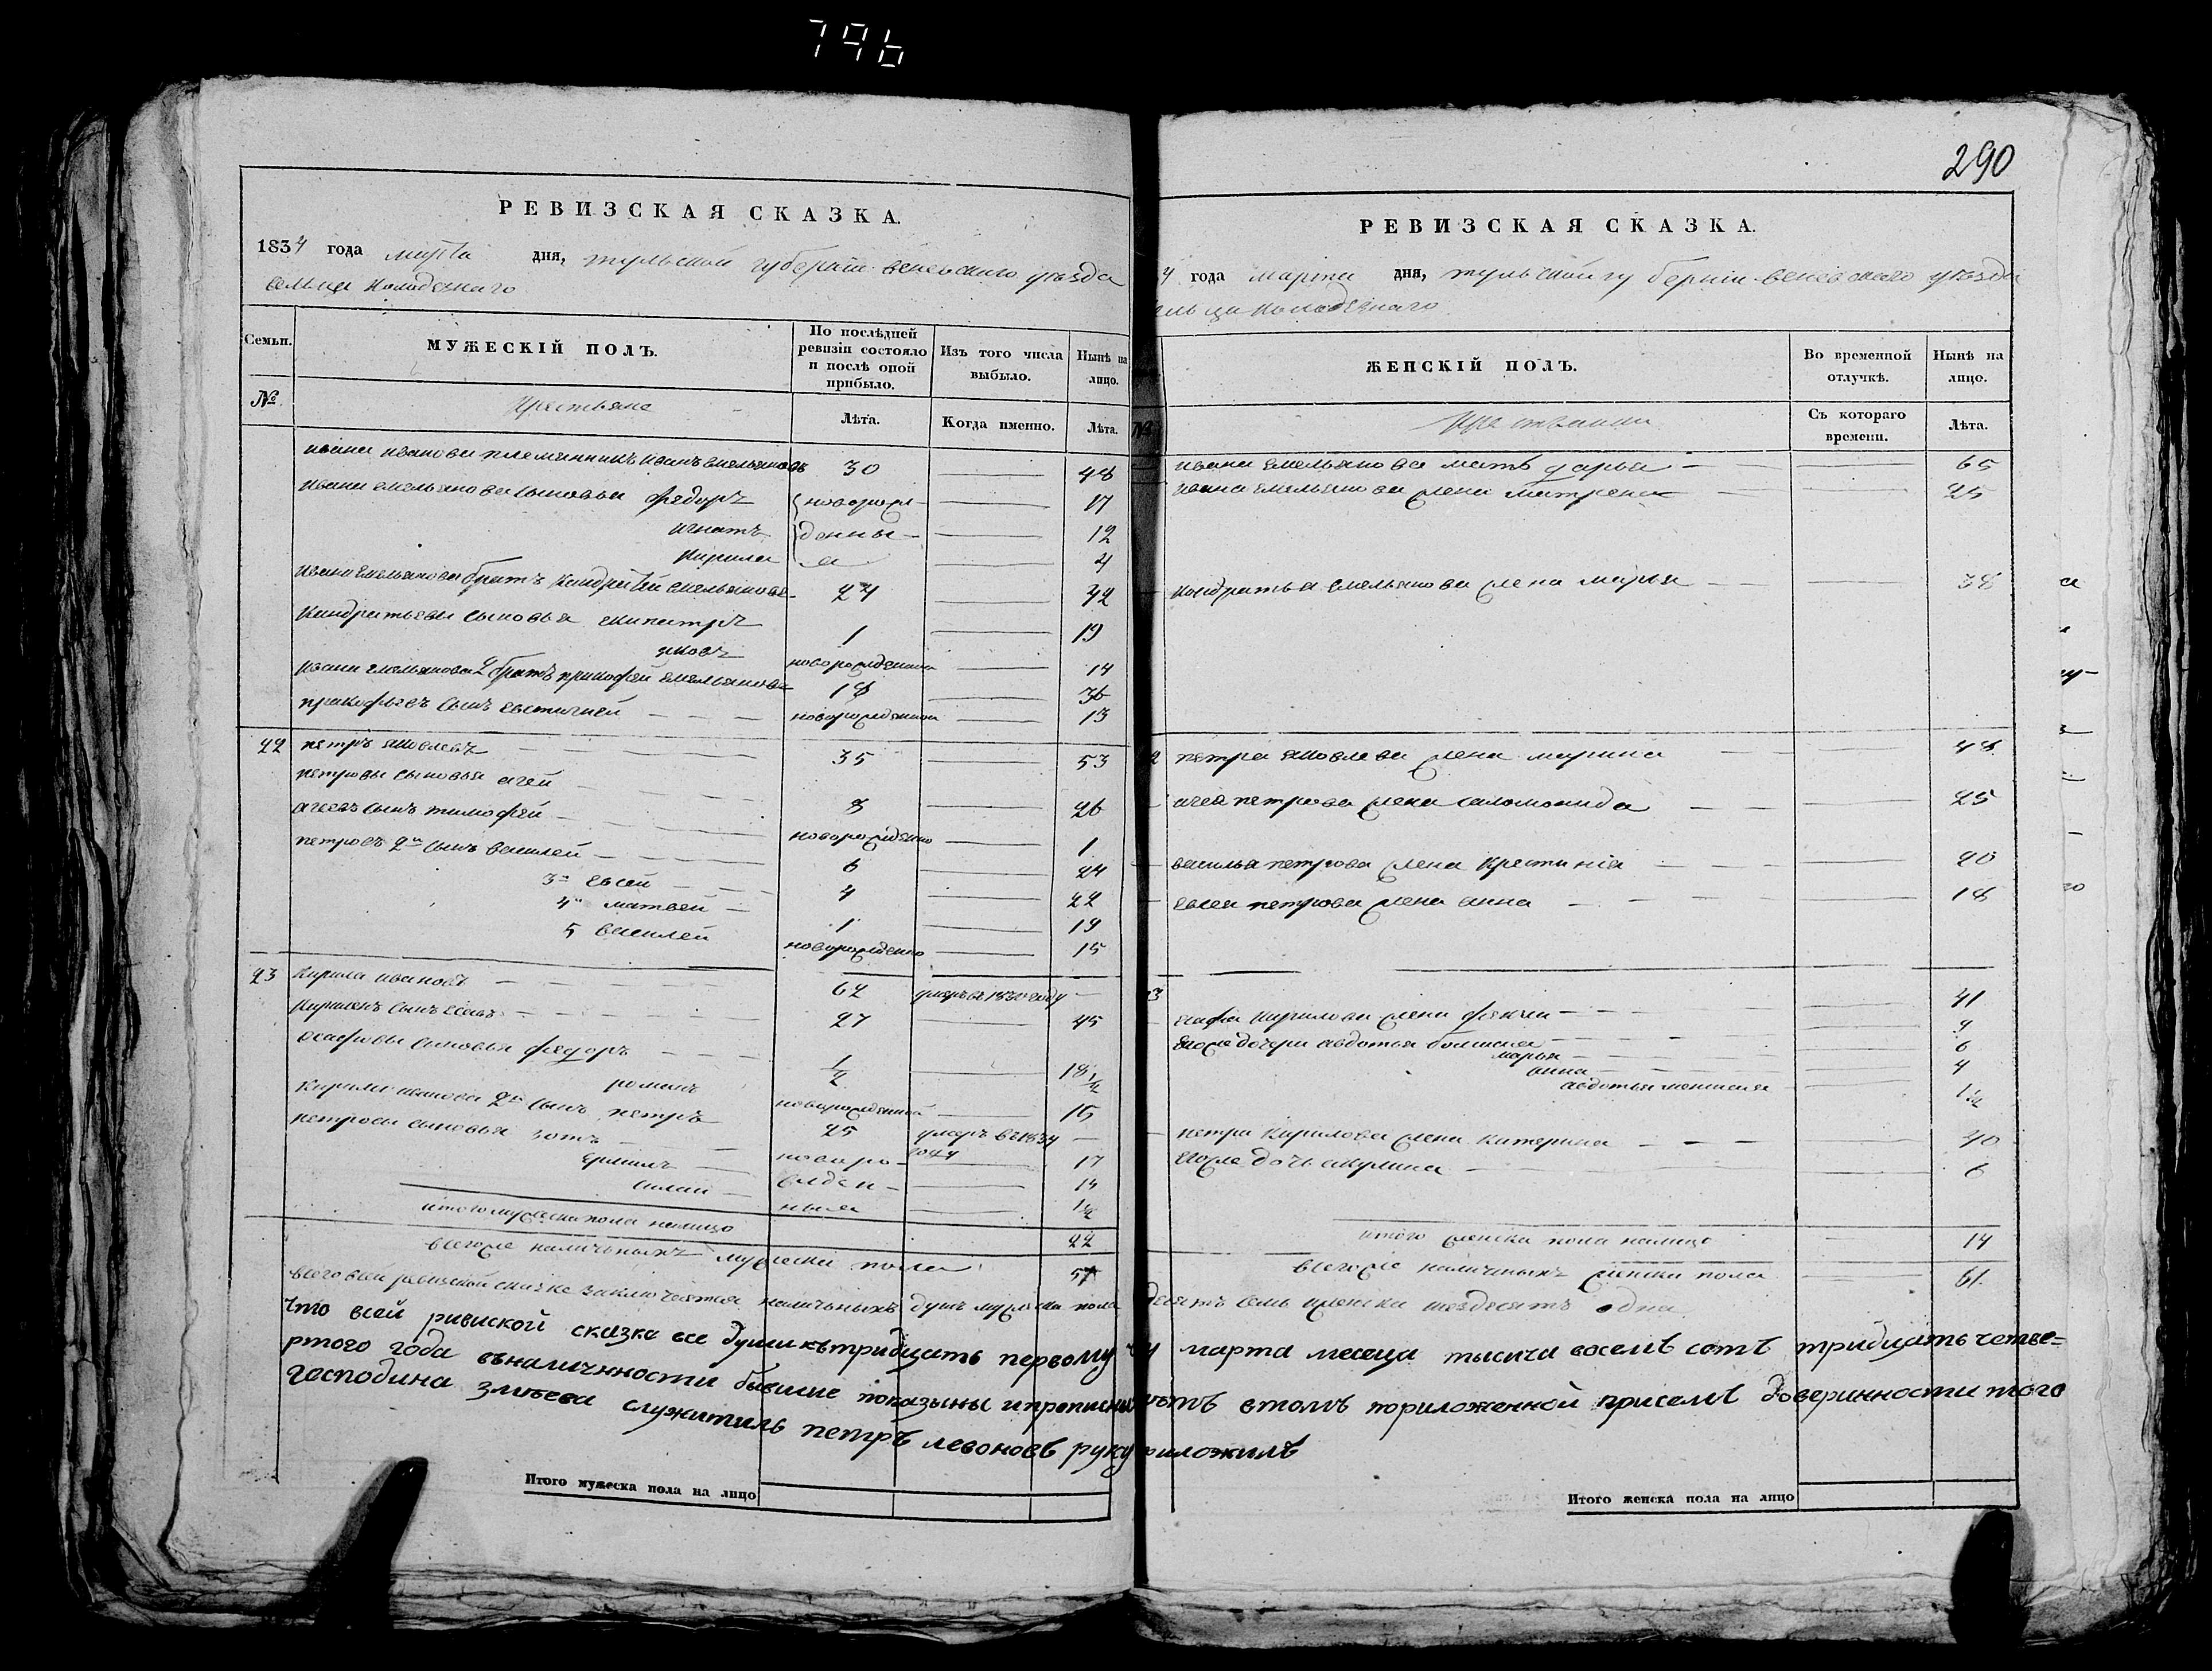 796
РЕВИЗСКАЯ СКАЗКА.
1834 года марта дня, тульской губернии веневского уезда
сельца Колодезнаго
Семьи.
МУЖЕСКІЙ ПОЛЪ.
По послѣдней ревизіи состояло и послѣ оной прибыло.
Изъ того числа выбыло.
Нынѣ на лицо.
№
Крестьяне
Лѣта.
Когда именно.
Лѣта.
ивана иванова племянникъ иванъ емельяновъ 30 48
ивана емельянова сыновья федоръ новорож 17
игнатъ денны 12
Кирила я 4
ивана емельянова братъ Кондратей емельяновъ 24 42
Кондратьевы сыновья 1 19
яковъ новорожденной 14
ивана емельянова 2 братъ прокофей емельяновъ 18 36
прокофьевъ сынъ евстигней новорожденной 13
22 петръ яковлевъ 35 53
петровы сыновья агей 8 26
агеевъ сынъ тимофей новорожденно 1
петровъ 2й сынъ василей 6 24
3й евсей 4 22
4й матвей 1 19
5 василей новорожденно 15
23 Кирила ивановъ 62 умеръ в 1830 году
Кириловъ сынъ 27 45
сыновья федоръ 1/2 18 1/2
романъ новорожденной 16
Кирилы иванова 2й сынъ петръ 25 умеръ в 1834 году
петровы сыновья зотъ новоро 17
ермилъ жден 14
ныя 1/2
итого мужеска пола налицо 22
всего же наличныхъ мужеска пола 57
всего всей ревиской сказке заключается наличныхъ душъ мужеска пола
что всей ривиской сказка все души къ тридцать первому
ртого года въ наличности бывшие показыны и прописных
господина служитиль петръ левоновъ руку
Итого мужеска пола на лицо
290
РЕВИЗСКАЯ СКАЗКА.
4 года марта дня, тульской губернии веневскаго уезда
сельца Колодезнаго
№
ЖЕНСКІЙ ПОЛЪ.
Во временной отлучкѣ.
Нынѣ на лицо.
Съ котораго времени.
Лѣта.
ивана емельянова мать дарья 65
ивана емельянова жена матрена 25
Кондратья емельянова жена марья 38
2 петра яковлева жена марина 48
агея петрова жена соломонида 25
василья петрова жена Крестиния 20
евсея петрова жена анна 18
3 Кирилова жена 41
его же дочери авдотья болшая 9
марья 6
анна 4
авдотья меншая 1 1/2
петра Кирилова жена Катерина 40
его же дочь акулина 6
итого женска пола налицо 14
всего же наличныхъ женска пола 61
десятъ семь женска шездесятъ одна
марта месеца тысича восемъ сотъ тридцать четве=
втомъ приложенной присемъ доверинности того
риложилъ
Итого женска пола на лицо